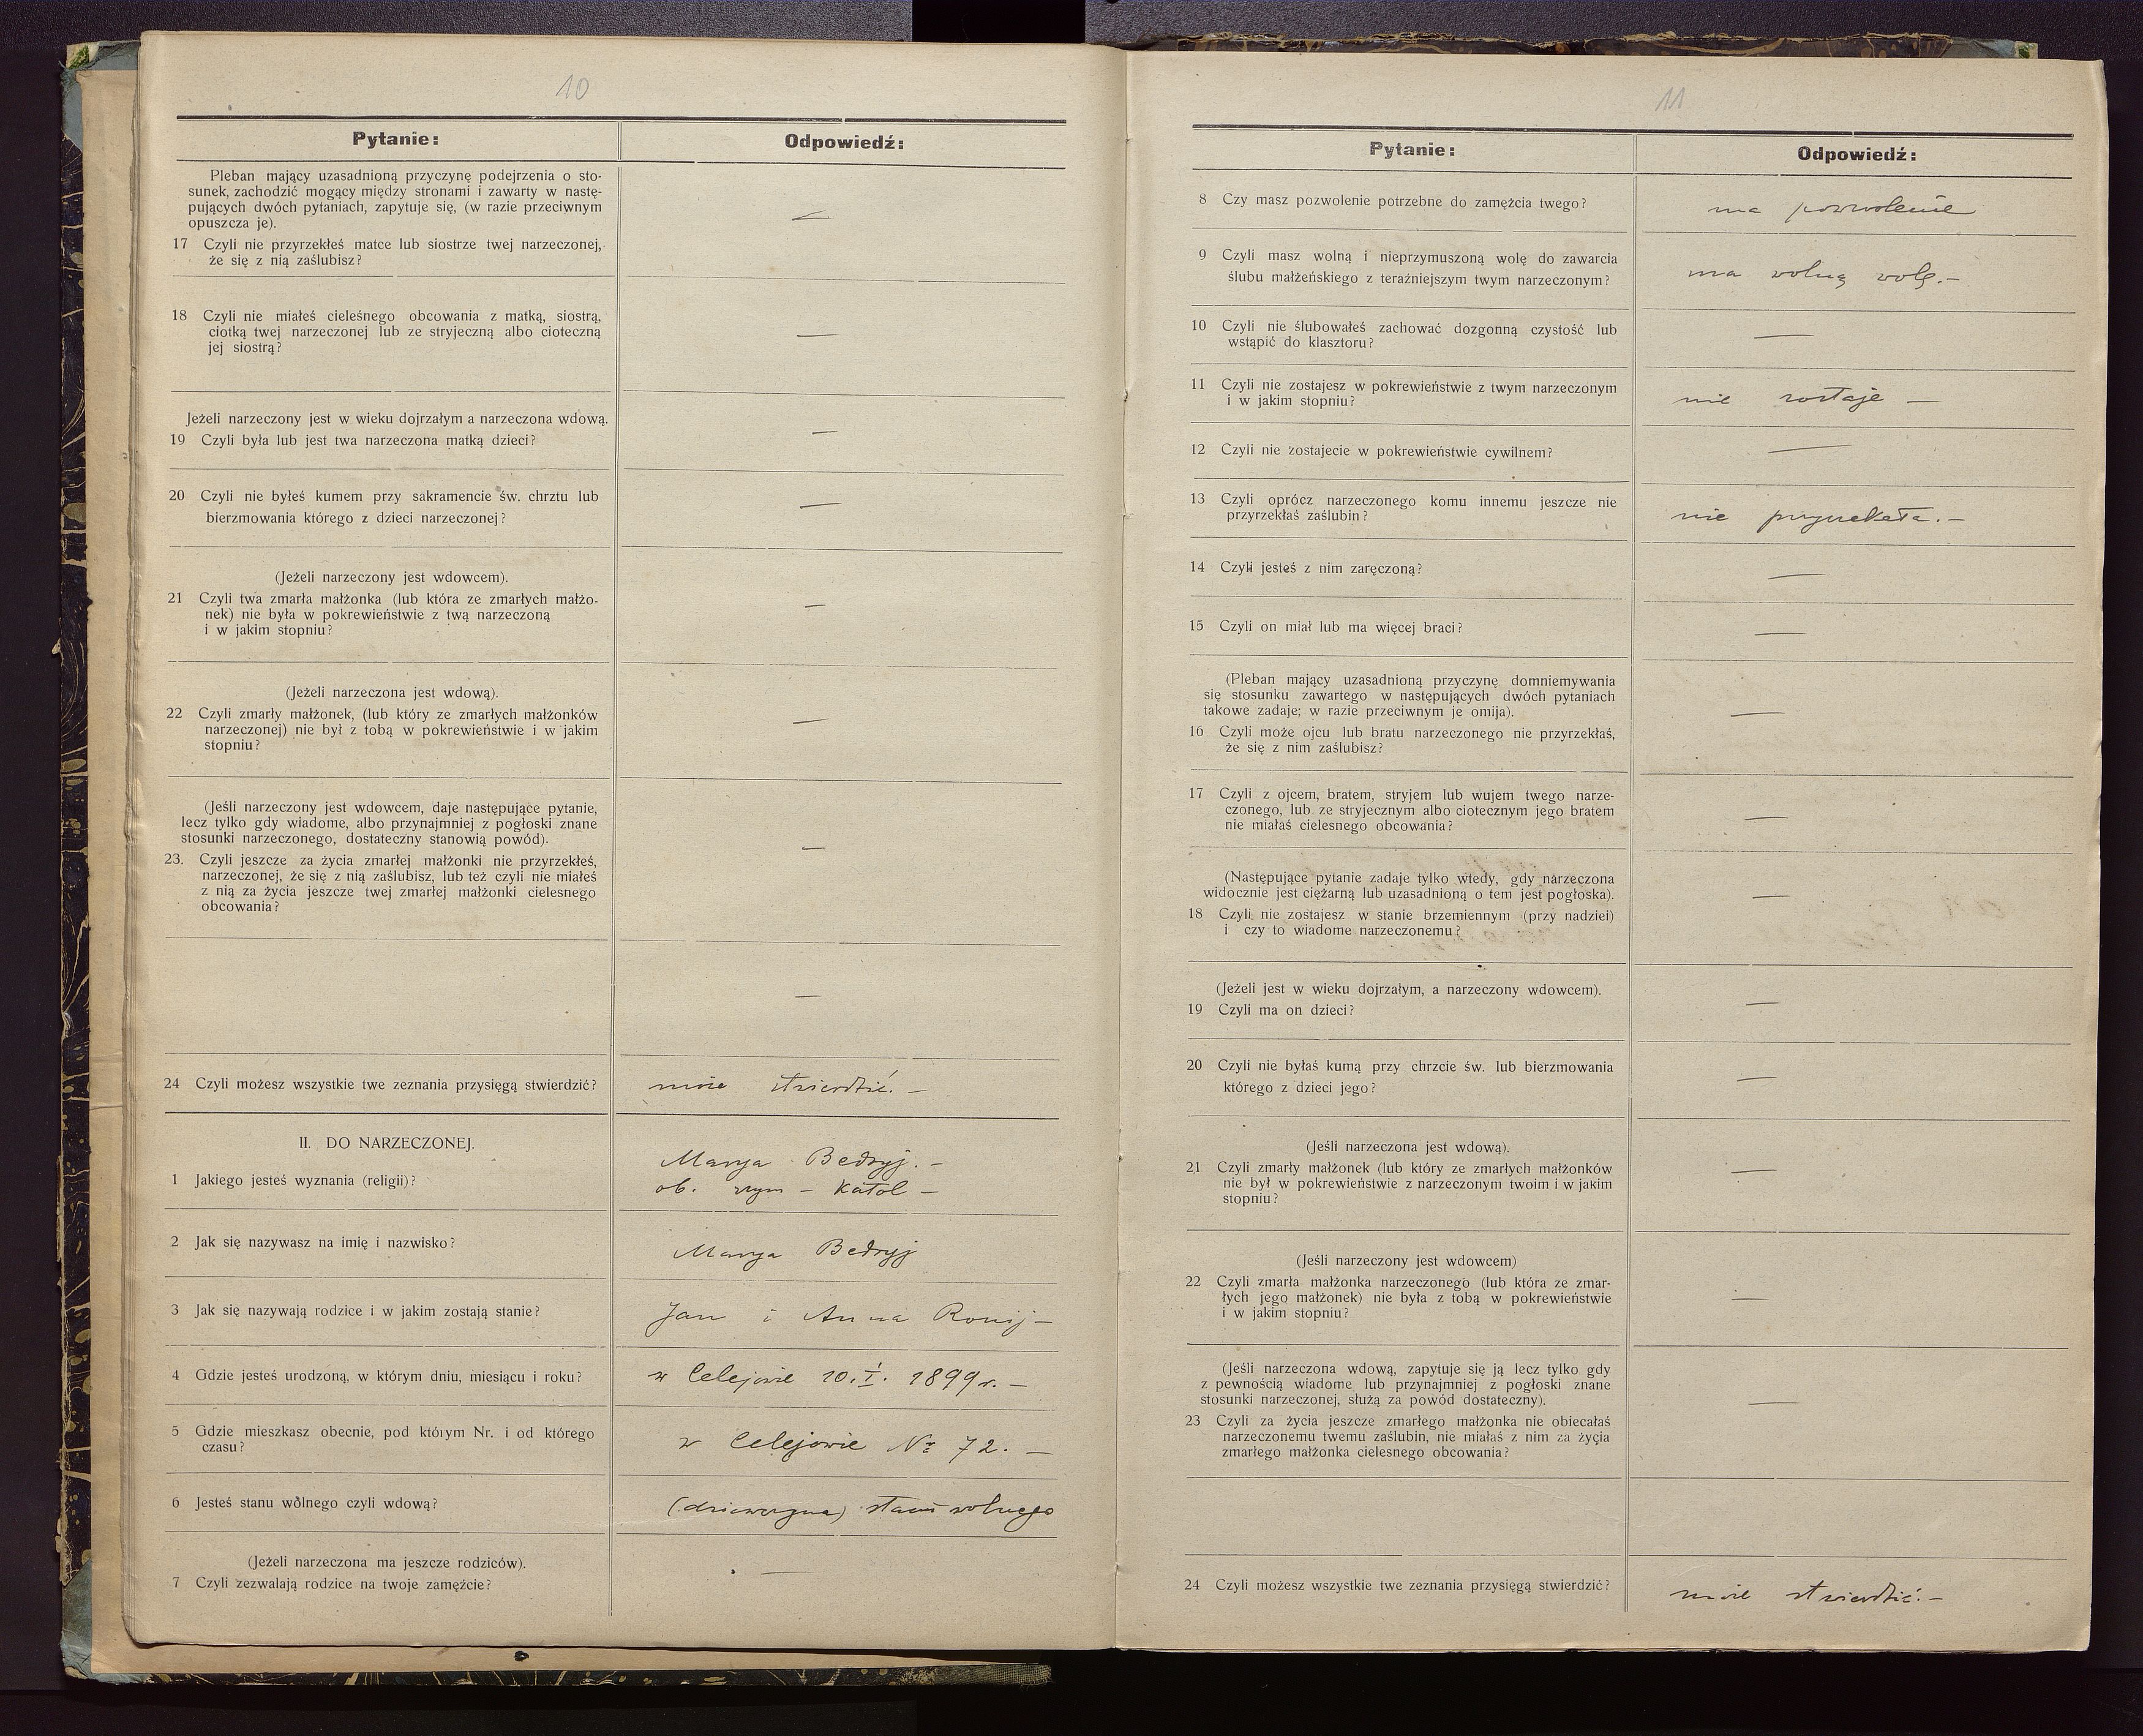 10
Pytanie:
Odpowiedź:
Pleban mający uzasadnioną przyczynę podejrzenia o sto-
sunek, zachodzić mogący między stronami i zawarty w nastę-
pujących dwóch pytaniach, zapytuje się, (w razie przeciwnym
opuszcza je).
17 Czyli nie przyrzekłeś matce lub siostrze twej narzeczonej,
że się z nią zaślubisz?
—
18 Czyli nie miałeś cieleśnego obcowania z matką, siostrą,
ciotką twej narzeczonej lub ze stryjeczną albo cioteczną
jej siostrą?
—
Jeżeli narzeczony jest w wieku dojrzałym a narzeczona wdową.
19 Czyli była lub jest twa narzeczona matką dzieci?
—
20 Czyli nie byłeś kumem przy sakramencie św. chrztu lub
bierzmowania którego z dzieci narzeczonej?
—
(Jeżeli narzeczony jest wdowcem).
21 Czyli twa zmarła małżonka (lub która ze zmarłych małżo-
nek) nie była w pokrewieństwie z twą narzeczoną
i w jakim stopniu?
—
(Jeżeli narzeczona jest wdową).
22 Czyli zmarły małżonek, (lub który ze zmarłych małżonków
narzeczonej) nie był z tobą w pokrewieństwie i w jakim
stopniu?
—
(Jeśli narzeczony jest wdowcem, daje następujące pytanie,
lecz tylko gdy wiadome, albo przynajmniej z pogłoski znane
stosunki narzeczonego, dostateczny stanowią powód).
23. Czyli jeszcze za życia zmarłej małżonki nie przyrzekłeś,
narzeczonej, że się z nią zaślubisz, lub też czyli nie miałeś
z nią za życia jeszcze twej zmarłej małżonki cielesnego
obcowania?
—
—
24 Czyli możesz wszystkie twe zeznania przysięgą stwierdzić?
może stwierdzić. —
II. DO NARZECZONEJ.
1 Jakiego jesteś wyznania (religii)?
Marya Bedryj. —
ob. rzym - katol —
2 Jak się nazywasz na imię i nazwisko?
Marya Bedryj
3 Jak się nazywają rodzice i w jakim zostają stanie?
Jan i Anna —
4 Gdzie jesteś urodzoną, w którym dniu, miesiącu i roku?
w Celejowie 10. I. 1899 r. —
5 Gdzie mieszkasz obecnie, pod którym Nr. i od którego
czasu?
w Celejowie Nr 72. —
6 Jesteś stanu wolnego czyli wdową?
(dziewczyna) stanu wolnego
(Jeżeli narzeczona ma jeszcze rodziców).
7 Czyli zezwalają rodzice na twoje zamężcie?
—
11
Pytanie:
Odpowiedź:
8 Czy masz pozwolenie potrzebne do zamężcia twego?
ma pozwolenie
9 Czyli masz wolną i nieprzymuszoną wolę do zawarcia
ślubu małżeńskiego z teraźniejszym twym narzeczonym?
ma wolną wolę. —
10 Czyli nie ślubowałeś zachować dozgonną czystość lub
wstąpić do klasztoru?
—
11 Czyli nie zostajesz w pokrewieństwie z twym narzeczonym
i w jakim stopniu?
nie zostaje —
12 Czyli nie zostajecie w pokrewieństwie cywilnem?
—
13 Czyli oprócz narzeczonego komu innemu jeszcze nie
przyrzekłaś zaślubin?
nie przyrzekała. —
14 Czyli jesteś z nim zaręczoną?
—
15 Czyli on miał lub ma więcej braci?
—
(Pleban mający uzasadnioną przyczynę domniemywania
się stosunku zawartego w następujących dwóch pytaniach
takowe zadaje; w razie przeciwnym je omija).
16 Czyli może ojcu lub bratu narzeczonego nie przyrzekłaś,
że się z nim zaślubisz?
—
17 Czyli z ojcem, bratem, stryjem lub wujem twego narze-
czonego, lub ze stryjecznym albo ciotecznym jego bratem
nie miałaś cielesnego obcowania?
—
(Następujące pytanie zadaje tylko wtedy, gdy narzeczona
widocznie jest ciężarną lub uzasadnioną o tem jest pogłoska).
18 Czyli nie zostajesz w stanie brzemiennym (przy nadziei)
i czy to wiadome narzeczonemu?
—
(Jeżeli jest w wieku dojrzałym, a narzeczony wdowcem).
19 Czyli ma on dzieci?
—
20 Czyli nie byłaś kumą przy chrzcie św. lub bierzmowania
którego z dzieci jego?
—
(Jeśli narzeczona jest wdową).
21 Czyli zmarły małżonek (lub który ze zmarłych małżonków
nie był w pokrewieństwie z narzeczonym twoim i w jakim
stopniu?
—
(Jeśli narzeczony jest wdowcem)
22 Czyli zmarła małżonka narzeczonego (lub która ze zmar-
łych jego małżonek) nie była z tobą w pokrewieństwie
i w jakim stopniu?
—
(Jeśli narzeczona wdową, zapytuje się ją lecz tylko gdy
z pewnością wiadome lub przynajmniej z pogłoski znane
stosunki narzeczonej, służą za powód dostateczny).
23 Czyli za życia jeszcze zmarłego małżonka nie obiecałaś
narzeczonemu twemu zaślubin, nie miałaś z nim za życia
zmarłego małżonka cielesnego obcowania?
—
24 Czyli możesz wszystkie twe zeznania przysięgą stwierdzić?
może stwierdzić. —